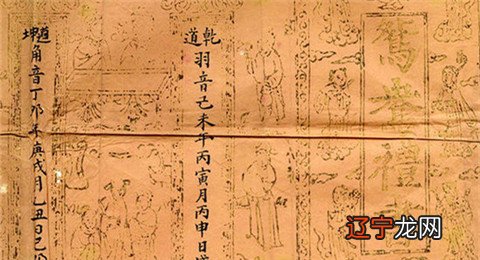 禮
乾道
羽音己未年丙寅月丙申日
坤道
角音丁卯年庚戌月乙丑日己
辽宁龙网